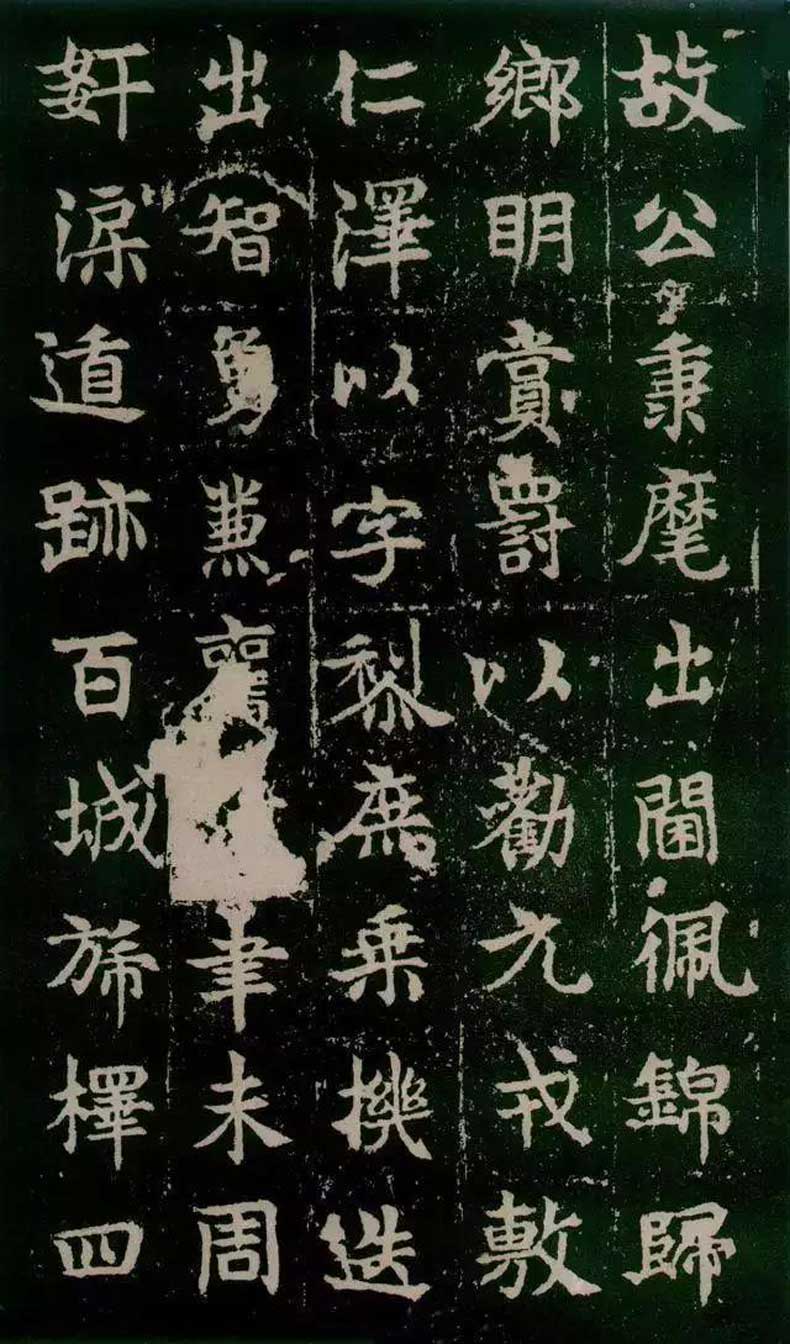 故公秉麾出閫佩錦歸
鄉明賞罰以勸元戎敷
仁澤以字黎庶乘機迭
出智勇兼聿未周
姧深遁跡百城旆檡四